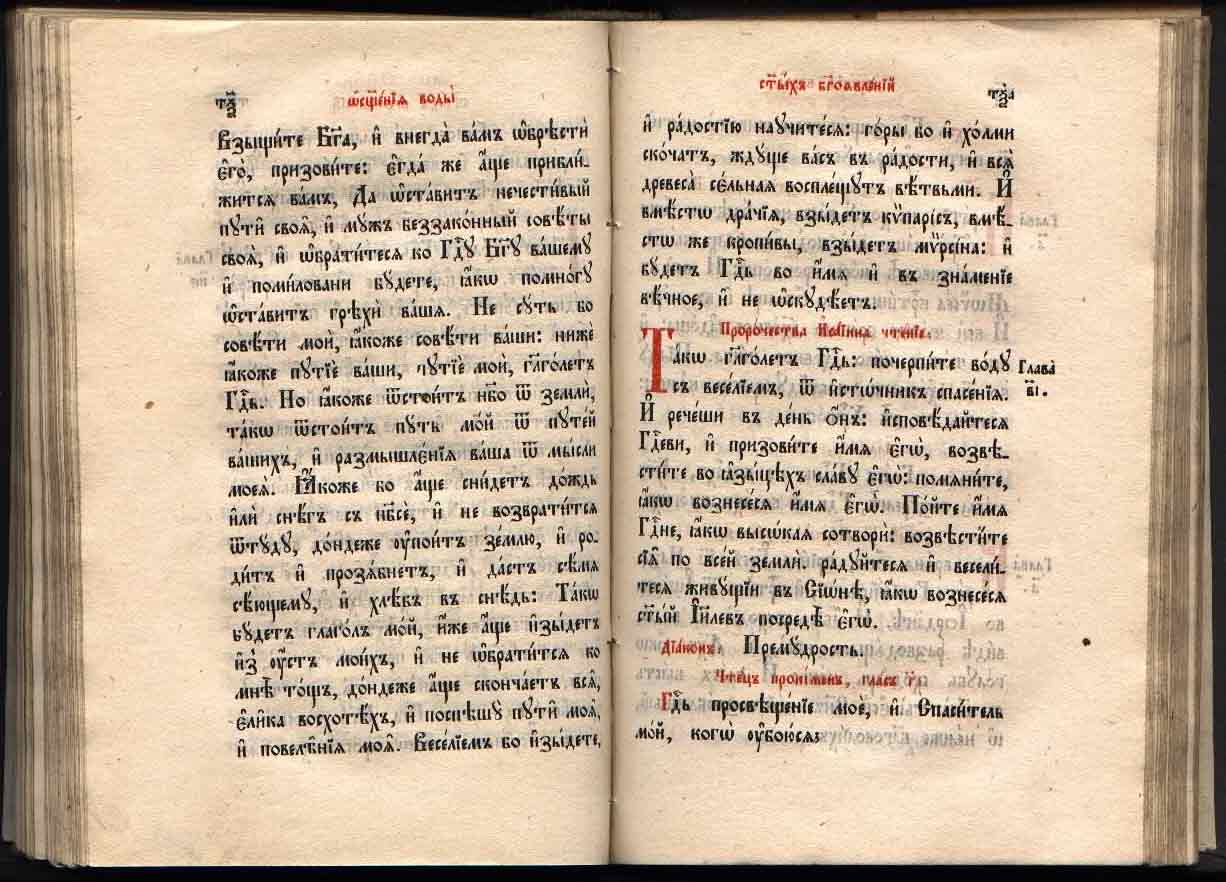 то҃
ѡ҆сщ҃е́нїѧ воды̀
Взыщи́те Бг҃а, и҆ внегда̀ ва́мъ ѡ҆брѣ́сти
є҆го̀, призови́те: є҆гда́ же а҆́ще прибли-
жится ва́мъ, Да ѡ҆ста́витъ нечести́вый
пути̑ своѧ̑, и҆ мꙋ́жъ беззако́нный совѣ́ты
своѧ̑, и҆ ѡ҆брати́тесѧ ко Гд҇ꙋ Бг҃ꙋ ва́шемꙋ
и҆ поми́ловани бꙋ́дете, ꙗ҆́кѡ помно́гꙋ
ѡ҆ста́витъ грѣхѝ ва́шѧ. Не сꙋ́ть бо
совѣ́ти моѝ, ꙗ҆́коже совѣ́ти ва́ши: нижѐ
ꙗ҆́коже пꙋтїѐ ва́ши, пꙋтїѐ моѝ, гл҃го́летъ
Гд҇ь. Но ꙗ҆́коже ѿстои́тъ нб҃о ѿ землѝ,
та́кѡ ѿстои́тъ пꙋ́ть мо́й ѿ пꙋте́й
ва́шихъ, и҆ размышле́нїѧ ва́ша ѿ мы́сли
моеѧ̀. Ꙗ҆́коже бо а҆́ще сни́детъ до́ждь
и҆лѝ снѣ́гъ съ нб҃се, и҆ не возврати́тсѧ
ѿтꙋ́дꙋ, до́ндеже ᲂу҆пои́тъ зе́млю, и҆ ро-
ди́тъ и҆ прозѧ́бнетъ, и҆ да́стъ сѣ́мѧ
сѣ́ющемꙋ, и҆ хлѣ́бъ въ снѣ́дь: Та́кѡ
бꙋ́детъ глаго́лъ мо́й, и҆́же а҆́ще и҆зы́детъ
и҆з̾ ᲂу҆́стъ мои́хъ, и҆ не ѡ҆брати́тсѧ ко
мнѣ̀ то́щъ, до́ндеже а҆́ще сконча́етъ всѧ̑,
є҆ли́ка восхотѣ́хъ, и҆ поспѣ́шꙋ пꙋти̑ моѧ̑,
и҆ повелѣ̑нїѧ моѧ̑. Весе́лїемъ бо и҆зы́дете,
ст҃ы́хъ бг҃оѧвле́нїй
то҃а
и҆ ра́достїю наꙋчи́тесѧ: го́ры бо и҆ хо́лми
ско́чатъ, ждꙋ́ще ва́съ въ ра́дости, и҆ всѧ̑
древеса̀ се́льнаѧ воспле́щꙋтъ вѣ́твьми. И҆
вмѣ́стѡ дра́чїѧ, взы́детъ кѷпарі́съ, вмѣ́-
стѡ же кропи́вы, взы́детъ мѷрсі́на: и҆
бꙋ́детъ Гд҇ь во и҆́мѧ и҆ въ зна́менїе
вѣ́чное, и҆ не ѡ҆скꙋдѣ́етъ.
Проро́чества И҆са́їина чте́нїе.
Та́кѡ гл҃го́летъ Гд҇ь: почерпи́те во́дꙋ
Глава̀
в҃і.
съ весе́лїемъ, ѿ и҆сто́чникъ спасе́нїѧ.
И҆ рече́ши въ де́нь ѻ҆́нъ: и҆сповѣ́дайтесѧ
Гд҇еви, и҆ призови́те и҆́мѧ є҆гѡ̀, возвѣ-
сти́те во ꙗ҆зы́цѣхъ сла́вꙋ є҆гѡ̀: помѧни́те,
ꙗ҆́кѡ вознесе́сѧ и҆́мѧ є҆гѡ̀. По́йте и҆́мѧ
Гд҇не, ꙗ҆́кѡ высѡ́каѧ сотворѝ: возвѣсти́те
сїѧ̑ по все́й землѝ, ра́дꙋйтесѧ и҆ весели́-
тесѧ живꙋ́щїи въ Сїѡ́нѣ, ꙗ҆́кѡ вознесе́сѧ
ст҃ы́й І҆и҃левъ посредѣ̀ є҆гѡ̀.
Дїа́конъ. Премꙋ́дрость.
Чте́цъ прокі́менъ, гла́съ г҃.
Гд҇ь просвѣще́нїе моѐ, и҆ Спаси́тель
мо́й, когѡ̀ ᲂу҆бою́сѧ: